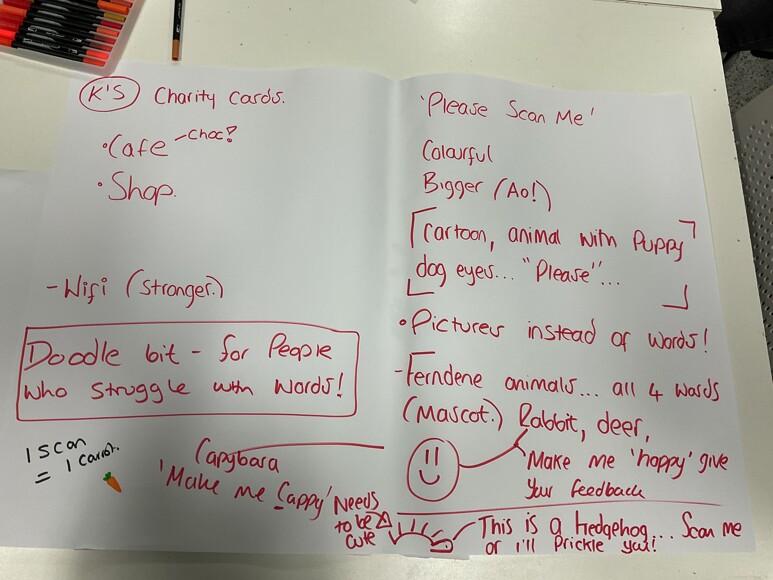 K'S Charity Cards.
• Cafe - Choc?
• Shop.
- Wifi (Stronger.)
Doodle bit - for People
who struggle with words!
1 scan
= 1 carrot.
Capybara
'Make me Cappy'
'Please Scan Me'
Colourful
Bigger (A0!)
[Cartoon, animal with Puppy
dog eyes... "Please"...]
• Pictures instead of words!
- Ferndene animals... all 4 wards
(Mascot.) Rabbit, deer,
Make me 'hoppy' give
your feedback
Needs
to be
cute
This is a Hedgehog... Scan me
or i'll Prickle you!